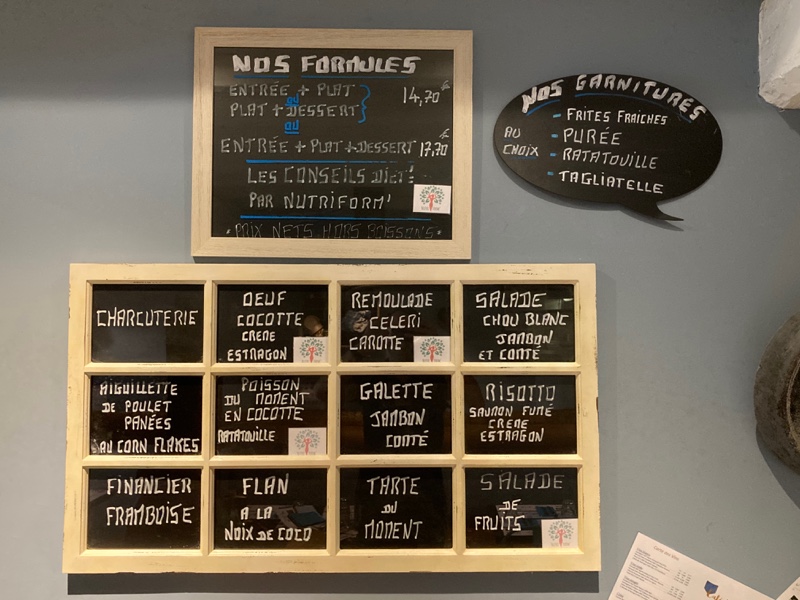 NOS FORMULES
ENTRÉE + PLAT
ou
PLAT + DESSERT
14,70€
ou
ENTRÉE + PLAT + DESSERT 17,70€
LES CONSEILS DIET'
PAR NUTRIFORM'
• PRIX NETS HORS BOISSONS •
NOS GARNITURES
AU CHOIX
- FRITES FRAICHES
- PURÉE
- RATATOUILLE
- TAGLIATELLE
CHARCUTERIE
OEUF
COCOTTE
CREME
ESTRAGON
REMOULADE
CELERI
CAROTTE
SALADE
CHOU BLANC
JAMBON
ET COMTÉ
AIGUILLETTE
DE POULET
PANÉES
AU CORN FLAKES
POISSON
DU MOMENT
EN COCOTTE
RATATOUILLE
GALETTE
JAMBON
COMTÉ
RISOTTO
SAUMON FUMÉ
CREME
ESTRAGON
FINANCIER
FRAMBOISE
FLAN
A LA
NOIX DE COCO
TARTE
DU
MOMENT
SALADE
DE
FRUITS